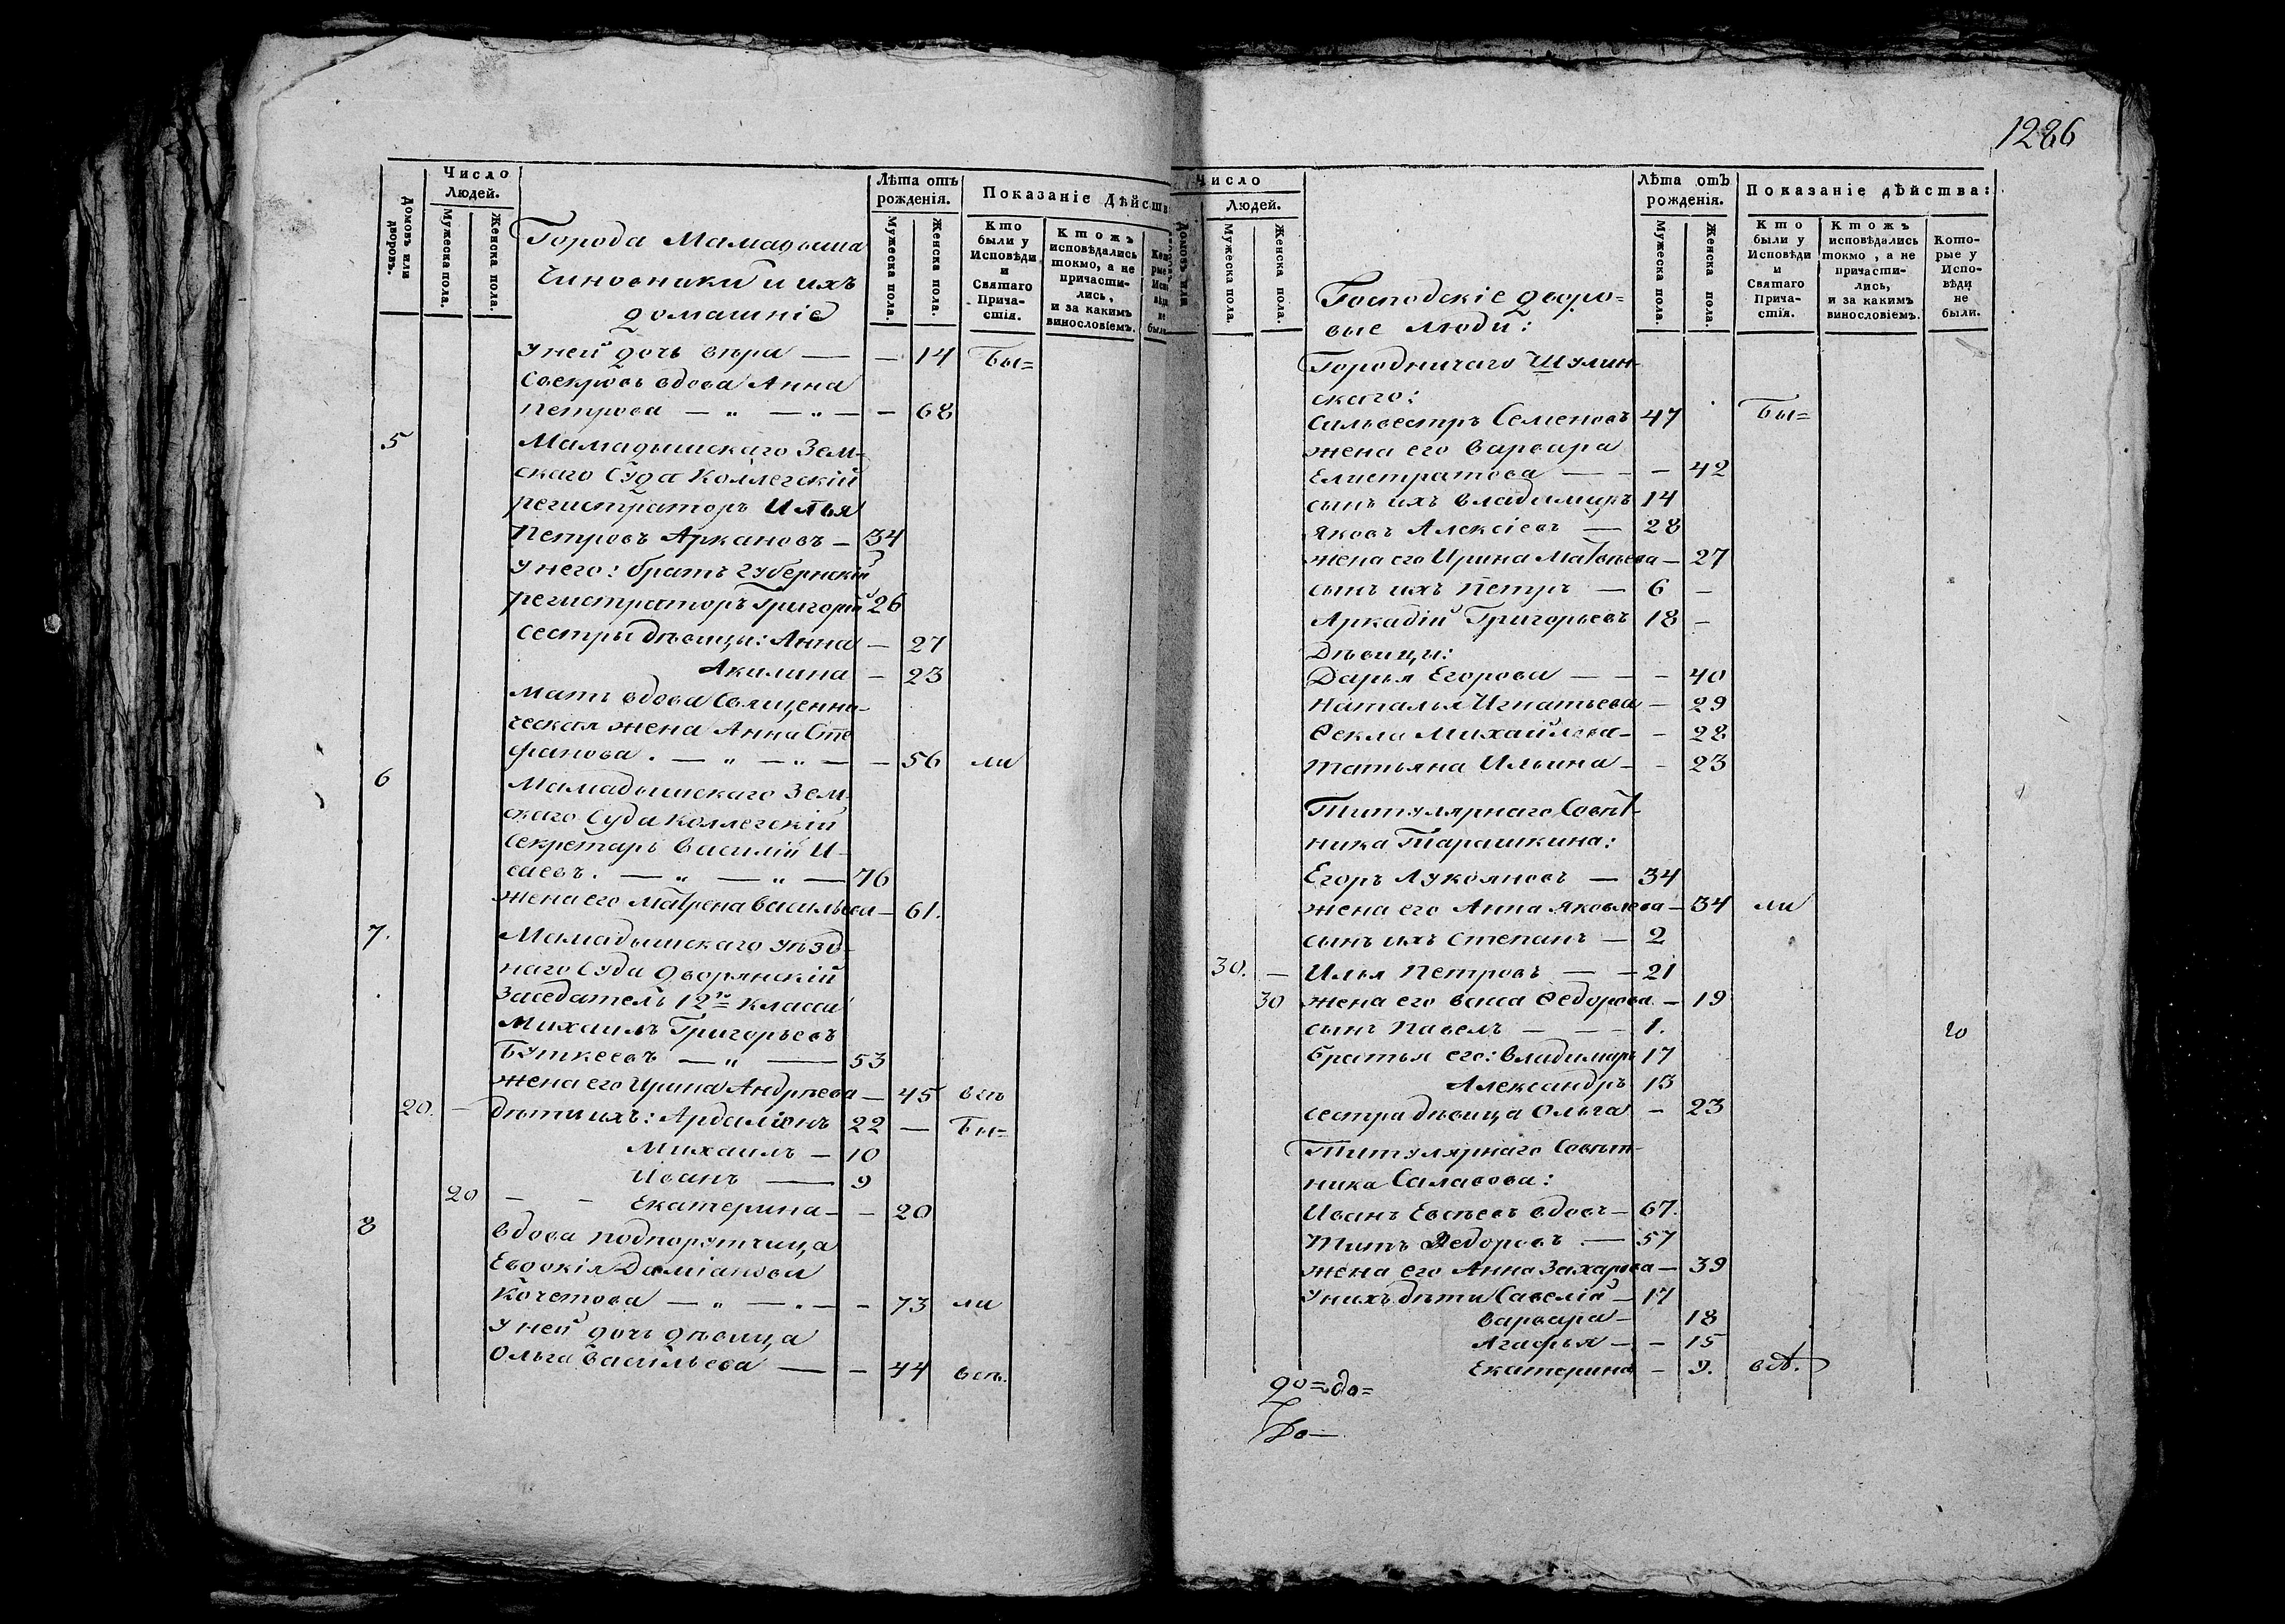 1286
Число
Людей.
Домовъ или дворовъ.
Мужеска пола.
Женска пола.
Лѣта отъ
рожденія.
Мужеска пола.
Женска пола.
Показаніе Дѣйств
Кто
были у
Исповѣди
и
Святаго
Прича-
стія.
Ктожъ
исповѣдались
токмо, а не
причасти-
лись,
и за какимъ
винословіемъ.
Города Мамадыша
Чиновники и ихъ
домашніе
У ней дочь Вѣра — — 14 Бы=
Свекровь вдова Анна
Петрова — „ — „ — — 68
5 Мамадышскаго Зем-
скаго Суда Коллегскій
регистраторъ Илья
Петровъ Аркановъ — 34
У него: братъ губернскій
регистраторъ Григорій 26
сестры дѣвицы: Анна — 27
Акилина — 23
мать вдова Священни-
ческая жена Анна Сте
фанова. — „ — „ — — 56 ли
6 Мамадышскаго Зем-
скаго Суда Коллегскій
Секретарь Василій И-
саевъ. — „ — „ — 76
жена его Матрена Васильева — 61.
7. Мамадышскаго уѣзд-
наго Суда дворянскій
Заседатель 12го класса
Михаилъ Григорьевъ
Буткеевъ — „ — 53
жена его Ирина Андрѣева — 45 всѣ
20. — дѣти ихъ: Ардаліонъ 22 — Бы=
Михаилъ — 10
Иванъ — 9
20 — — Екатерина — — 20
8 Вдова подпорутчица
Евдокія Даміанова
Кочетова — „ — „ — — 73 ли
У ней дочь дѣвица
Ольга Васильева — — 44 всѣ.
Число
Людей.
Домовъ или
Мужеска пола.
Женска пола.
Лѣта отъ
рожденія.
Мужеска пола.
Женска пола.
Показаніе дѣйства:
Кто
были у
Исповѣди
и
Святаго
Прича-
стія.
Ктожъ
исповѣдались
токмо, а не
причасти-
лись,
и за какимъ
винословіемъ.
Кото-
рые у
Испо-
вѣди
не
были.
Господскіе дворо=
вые люди:
Городничаго Шулин-
скаго:
Сильвестръ Семеновъ 47 Бы=
жена его Варвара
Елистратова — — — 42
сынъ ихъ Владимиръ 14
Яковъ Алексіевъ — 28
жена его Ирина Матвѣева — 27
сынъ ихъ Петръ — 6 —
Аркадій Григорьевъ 18 —
Дѣвицы:
Дарья Егорова — — — 40
Наталья Игнатьева — 29
Ѳекла Михайлова — — 28
Татьяна Ильина — — 23
Титулярнаго Совѣт-
ника Тарашкина:
Егоръ Лукояновъ — 34
жена его Анна Яковлева — 34 ли
сынъ ихъ Степанъ — 2
30. — Илья Петровъ — — 21
30 жена его Васса Ѳедорова — 19
сынъ Павелъ — — — 1.
братья его: Владимиръ 17
Александръ 13
сестра дѣвица Ольга — 23
Титулярнаго Совѣт-
ника Саласова:
Иванъ Евсѣевъ вдовъ — 67.
Титъ Ѳедоровъ — 57
жена его Анна Захарова — 39
У нихъ дѣти Савелій — 17
Варвара — 18
Агафья — — 15
Екатерина — 9. всѣ.
до=до=
До—